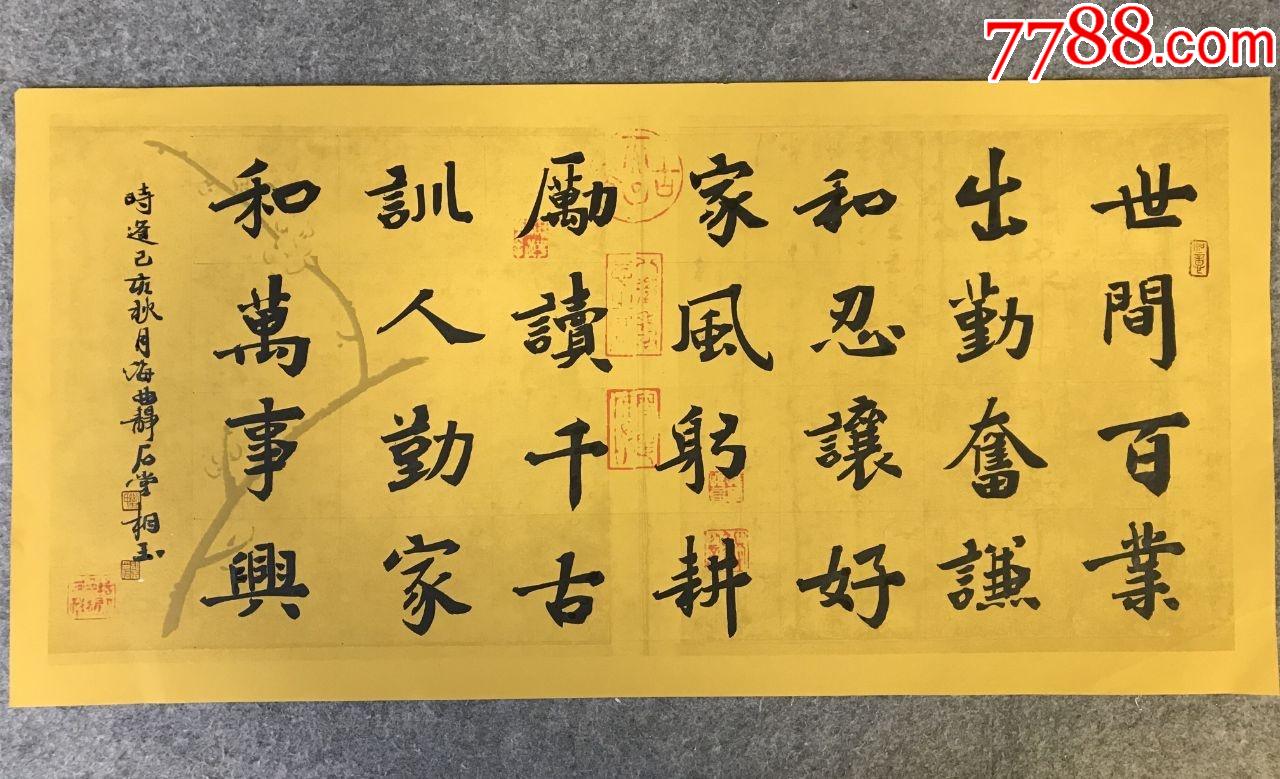 7788.com
世間百業
出勤奮謙
和忍讓好
家風躬耕
勵讀千古
訓人勤家
和萬事興
時逢己亥秋月海曲靜石堂相玉